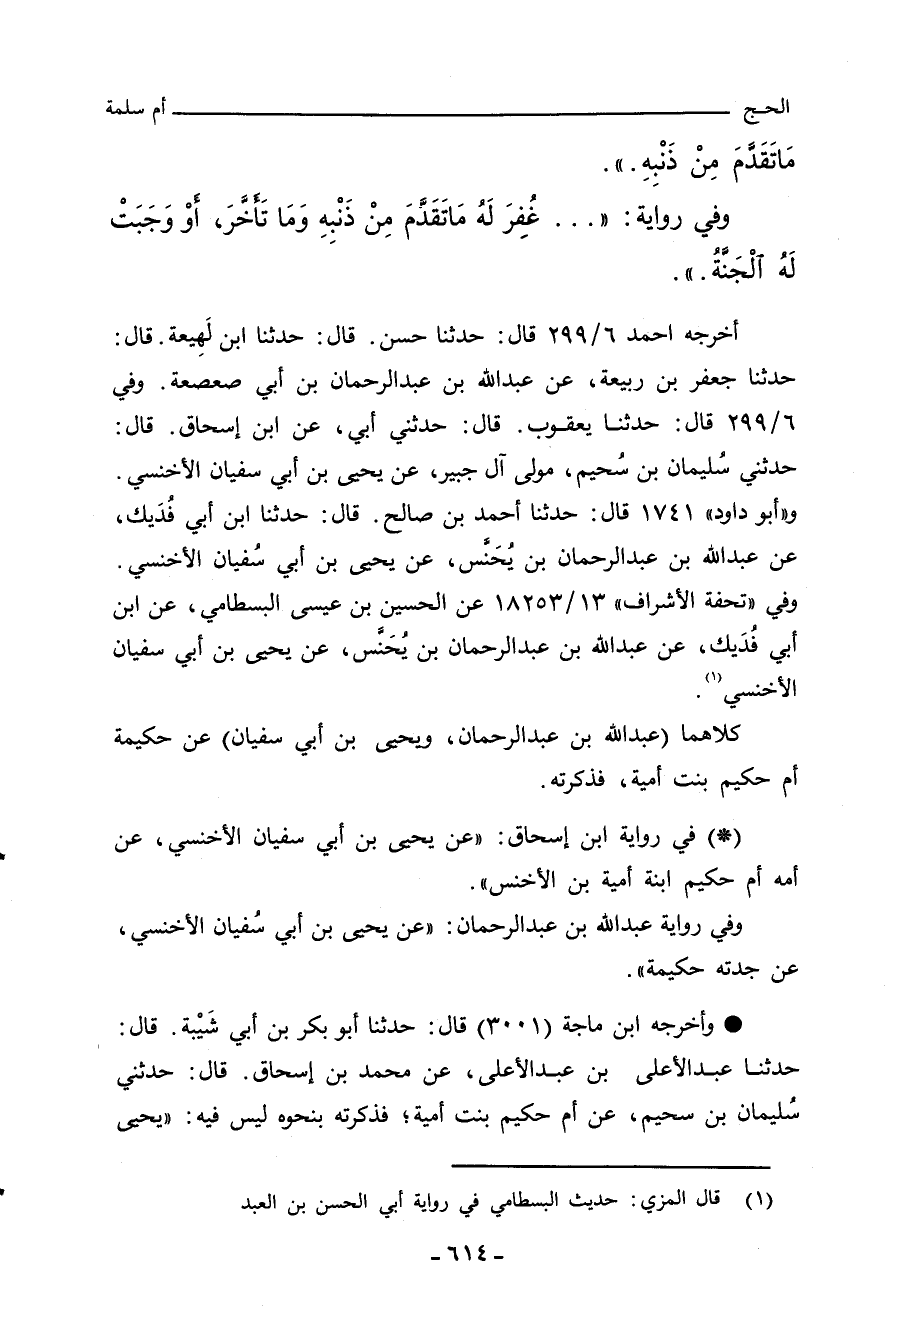 الحـج أم سلمة
مَاتَقَدَّمَ مِنْ ذَنْبِهِ.».
وفي رواية: «... غُفِرَ لَهُ مَاتَقَدَّمَ مِنْ ذَنْبِهِ وَمَا تَأَخَّرَ، أَوْ وَجَبَتْ
لَهُ ٱلْجَنَّةُ.».
أخرجه احمد ٢٩٩/٦ قال: حدثنا حسن. قال: حدثنا ابن لَهِيعة. قال:
حدثنا جعفر بن ربيعة، عن عبدالله بن عبدالرحمان بن أبي صعصعة. وفي
٢٩٩/٦ قال: حدثنـا يعقـوب. قال: حدثني أبي، عن ابن إسحاق. قال:
حدثني سُليمان بن سُحيم، مولى آل جبير، عن يحيى بن أبي سفيان الأخنسي.
و«أبو داود» ١٧٤١ قال: حدثنا أحمد بن صالح. قال: حدثنا ابن أبي فُدَيك،
عن عبدالله بن عبدالرحمان بن يُحَنَّس، عن يحيى بن أبي سُفيان الأخنسي.
وفي «تحفة الأشراف» ١٨٢٥٣/١٣ عن الحسين بن عيسى البسطامي، عن ابن
أبي فُدَيك، عن عبدالله بن عبدالرحمان بن يُحَنَّس، عن يحيى بن أبي سفيان
الأخنسي(١).
كلاهما (عبدالله بن عبدالرحمان، ويحيى بن أبي سفيان) عن حكيمة
أم حكيم بنت أمية، فذكرته.
(*) في رواية ابن إسحاق: «عن يحيى بن أبي سفيان الأخنسي، عن
أمه أم حكيم ابنة أمية بن الأخنس».
وفي رواية عبدالله بن عبدالرحمان: «عن يحيى بن أبي سُفيان الأخنسي،
عن جدته حكيمة».
● وأخرجه ابن ماجة (٣٠٠١) قال: حدثنا أبو بكر بن أبي شَيْبة. قال:
حدثنـا عبـدالأعلى بن عبـدالأعلى، عن محمد بن إسحاق. قال: حدثني
سُليمان بن سحيم، عن أم حكيم بنت أمية؛ فذكرته بنحوه ليس فيه: «يحيى
(١) قال المزي: حديث البسطامي في رواية أبي الحسن بن العبد
- ٦١٤ -